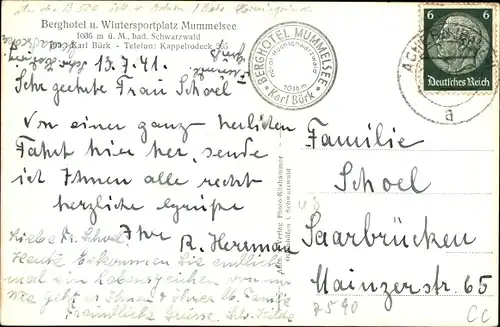 Berghotel u. Wintersportplatz Mummelsee
1036 m ü. M., bad. Schwarzwald
Karl Börk - Telefon: Kappelrodeck
13.7.41.
Sehr geehrte Frau Schoel
Von einer ganz herlichen
Fahrt hier her, sende
ich Ihnen alle recht
herzliche Grüße
Ihre
R. Herrman
Liebe Fr. Schoel
Heute bekommen Sie endlich
mal ein Lebenszeichen von mir
Wie geht es Ihnen u. Ihrer lb. Familie
Freundliche Grüsse
BERGHOTEL MUMMELSEE
1036 m
Karl Börk
6 6
Deutsches Reich
a
Familie
Schoel
Saarbrücken
Mainzerstr 65
7590
CC